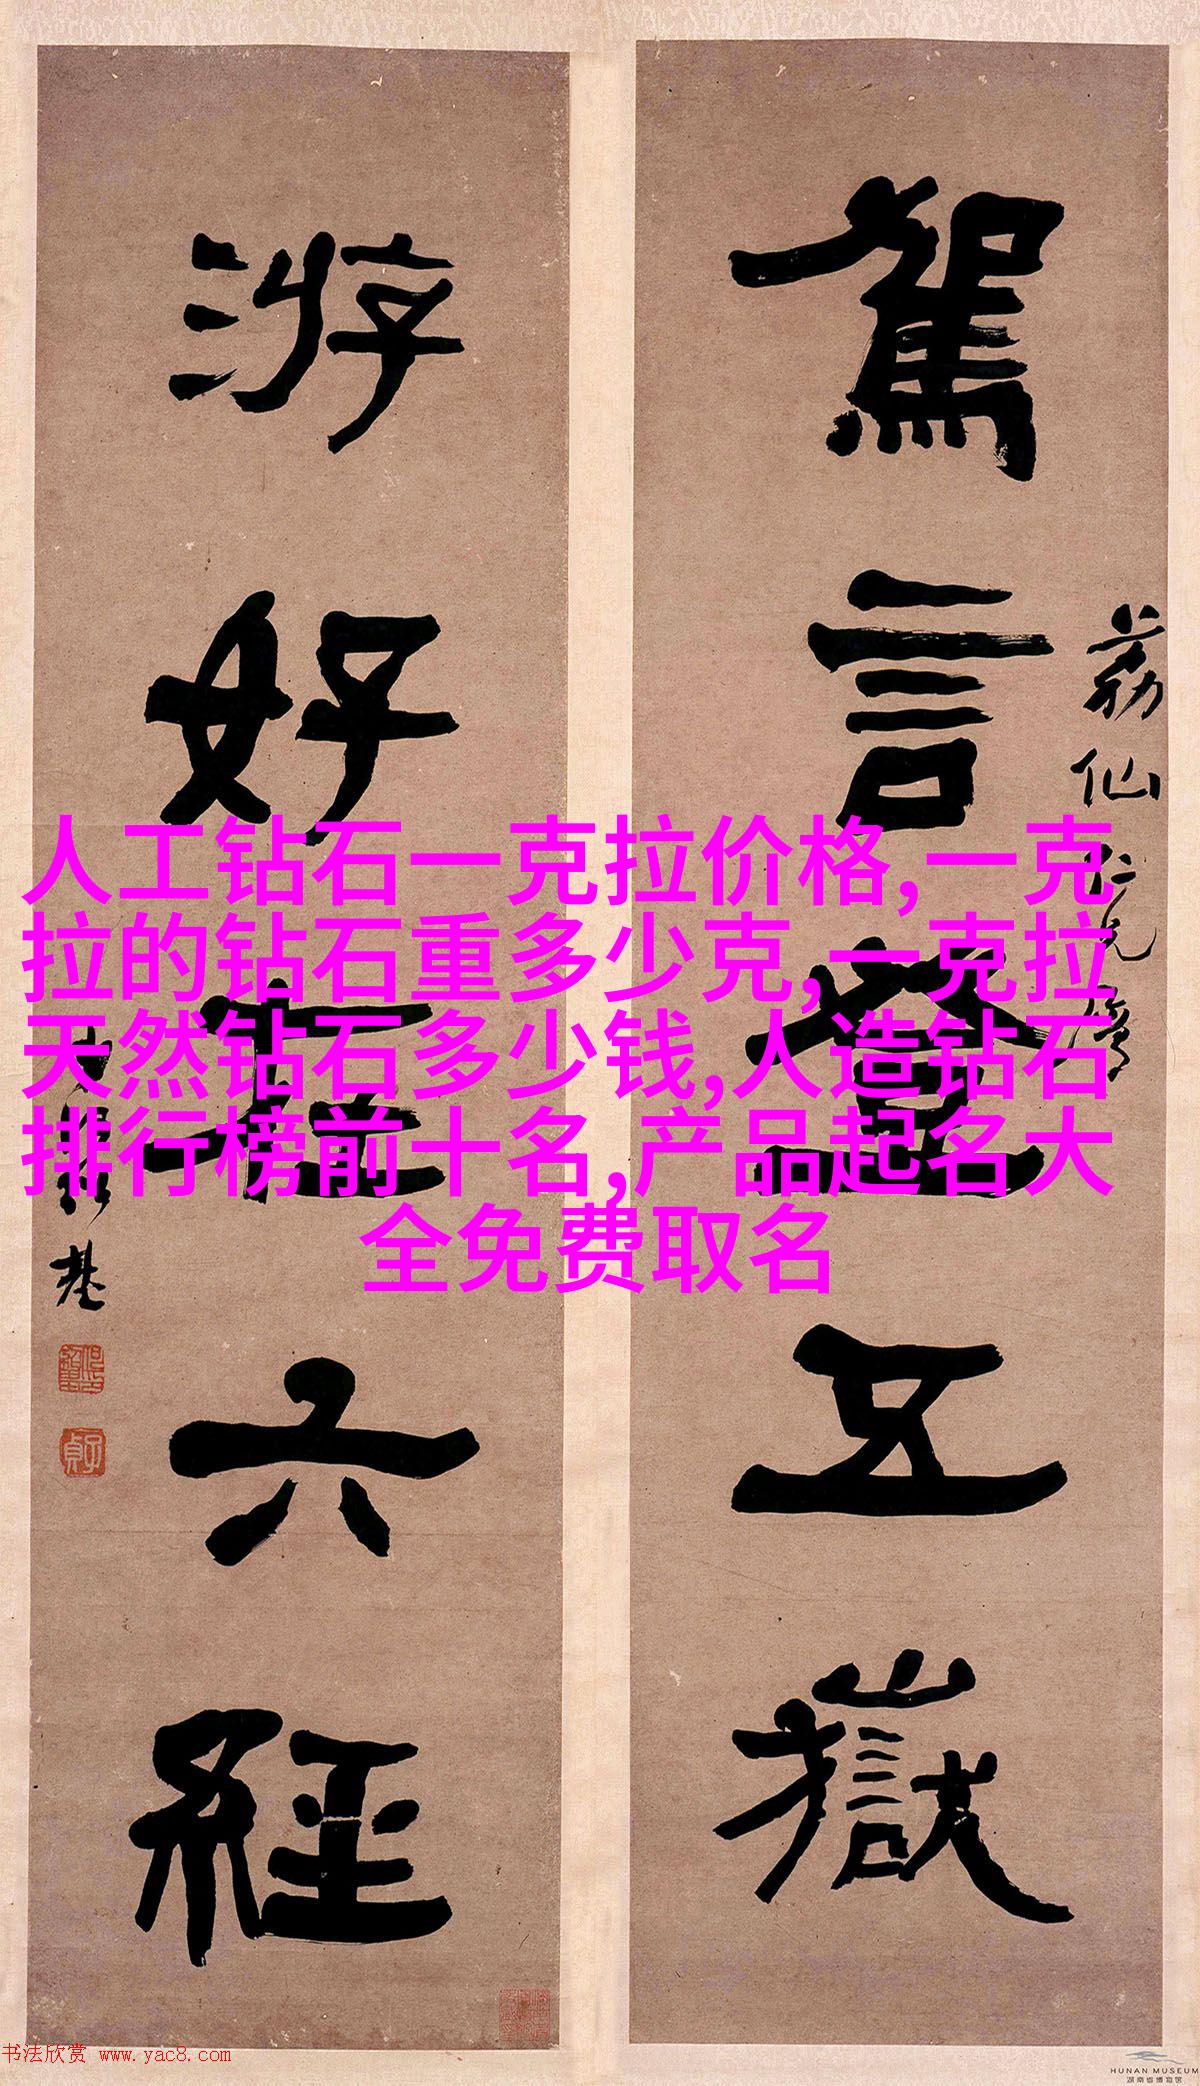 駕言登五嶽
荔仙仁兄属
游好在六經
何紹基
人工钻石一克拉价格,一克
拉的钻石重多少克,一克拉
天然钻石多少钱,人造钻石
排行榜前十名,产品起名大
全免费取名
书法欣赏 www.yac8.com
HUNAN MUSEUM
湖南省博物馆